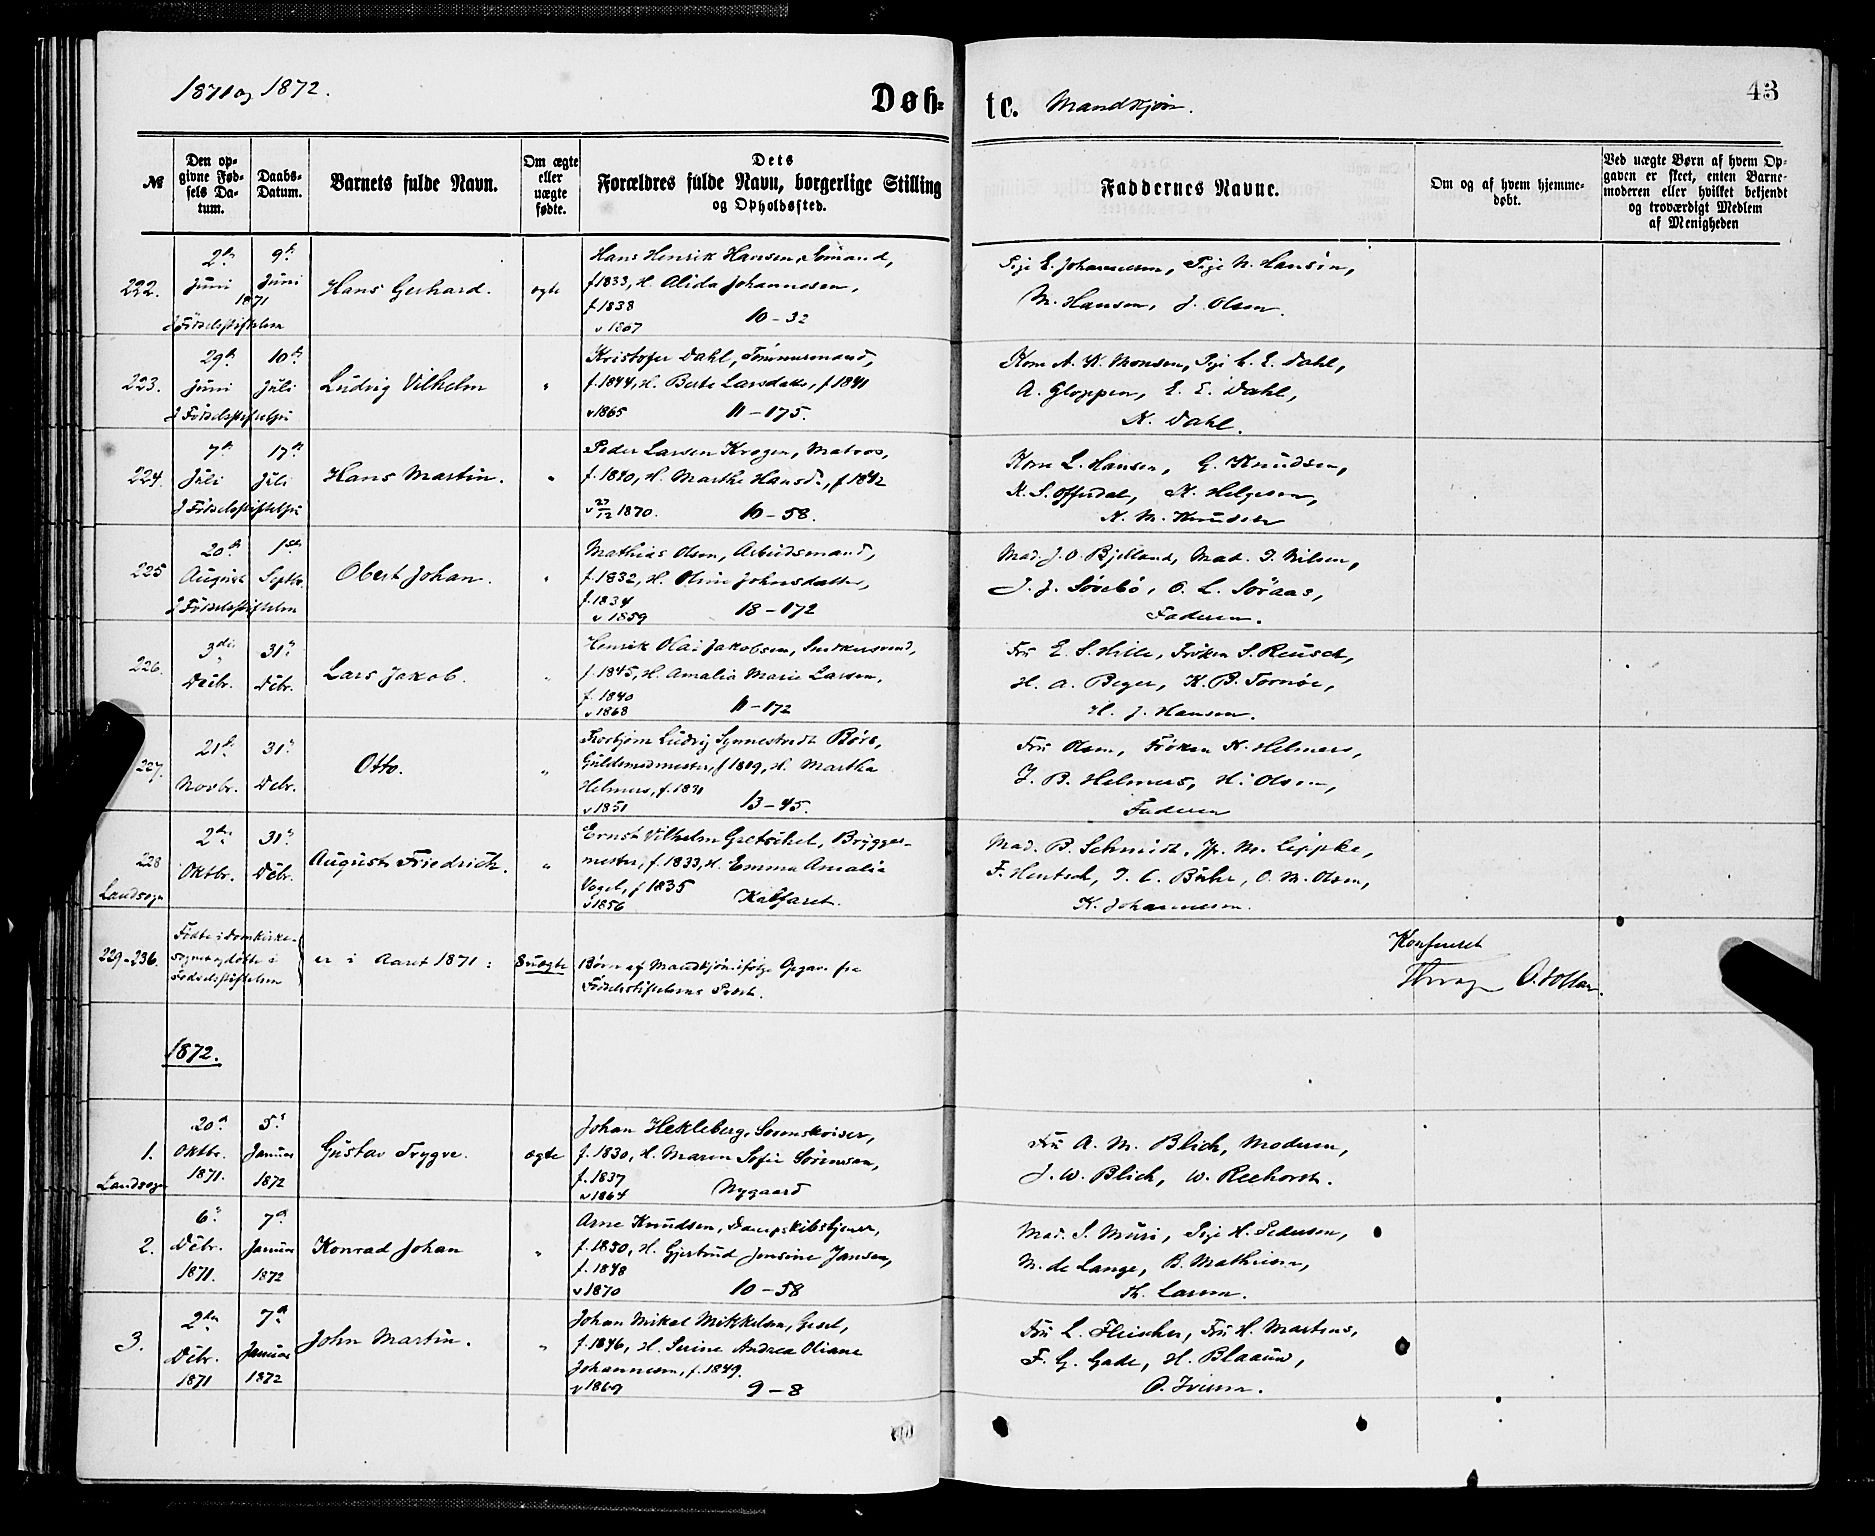 1871 og 1872.
Døb- te. Mandkjøn.
43
№
Den op-
givne Fød-
sels Da-
tum.
Daabs-
Datum.
Barnets fulde Navn.
Om ægte
eller
uægte
fødte.
Dets
Forældres fulde Navn, borgerlige Stilling
og Opholdssted.
Faddernes Navne.
Om og af hvem hjemme-
døbt.
Ved uægte Børn af hvem Op-
gaven er skeet, enten Barne-
moderen eller hvilket bekjendt
og troværdigt Medlem
af Menigheden
222.
2den Juni
9de Juni
1871
I Fødselsstiftelsen
Hans Gerhard.
ægte
Hans Henrik Hansen, Sømand,
f 1833, H. Alida Johannesen,
f. 1838
v 1867 10-32
Pige E. Johannesen, Pige N. Hansen,
M. Hansen, J. Olsen.
223.
29de Juni
10de Juli
I Fødselsstiftelsen
Ludvig Vilhelm
"
Kristofer Dahl, Tømmermand,
f. 1844, H. Berte Larsdatter, f 1841
v 1865 11-175.
Kone A. K. Monsen, Pige E. Dahl,
A. Gloppen, E. E. Dahl,
N. Dahl.
224.
7de Juli
17de Juli
I Fødselsstiftelsen
Hans Martin.
"
Peder Larsen Kragen, Matros,
f. 1840, H. Marthe Hansd., f 1842
v 27/12 1870. 10-58.
Kone L. Hansen, G. Knudsen,
K. S. Offerdal, N. Helgesen,
N. M. Knudsen
225
20de August
1ste Septbr.
I Fødselsstiftelsen
Obert Johan.
"
Mathias Olsen, Arbeidsmand,
f. 1832, H. Oline Johnsdatter,
f. 1834
v 1859 18-172
Mad. J. O. Bjelland, Mad. I. Nilsen,
J. J. Søvebø, O. L. Söraas,
Faderen.
226.
3die Decbr.
31te Decbr.
Lars Jakob.
"
Henrik Olai Jakobsen, Snekkersvend,
f. 1845, H. Amalia Marie Larsen,
f. 1840
v 1868 11-172
Fru E. S. Hille, Frøken S. Reusch,
H. A. Beyer, K. B. Tornöe,
H. J. Hansen.
227.
21de Novbr.
31te Decbr.
Otto.
"
Thorbjørn Ludvig Synnestvedt Børs,
Guldsmedmester, f 1819, H. Martha
Helmers, f. 1831
v 1851 13-45.
Fru Olsen, Frøken N. Helmers,
J. B. Helmers, H. Olsen,
Faderen
228
Landsogn
2den Oktbr.
31te Decbr.
August Friedrich.
"
Ernst Vilhelm Gretschel, Brygger-
mester, f. 1833, H. Emma Amalia
Vogel, f 1835
v 1856 Kalfaret.
Mad. B. Schmidt, Jfr. M. Lippke,
F. Hentsch, J. C. Bühr, O. M. Olsen,
K. Johannesen.
229-236.
Fødte i Domkirke-
sognet og døbte i
Fødselsstiftelsen
er i Aaret 1871: 8 uægte Børn af Mandkjøn ifølge Opgave fra
Fødselsstiftelsens Præst.
Konfereret
1872.
1.
Landsogn
20de Oktbr. 1871.
5te Januar 1872
Gustav Trygve.
ægte
Johan Hekleberg,
f. 1830, H. Maren Sofie Sørensen,
f. 1837
v 1864 Nygaard
Fru A. M. Blich, Moderen,
J. W. Blich, W. Reehorst.
2.
6te Decbr. 1871.
7de Januar 1872
Konrad Johan
"
Arne Knudsen, Dampskibsfyrer,
f. 1850, H. Gjertrud Jensine Jansen,
f. 1848
v 1870 10-58
Mad. S. Müri, Pige H. Pedersen,
M. de Lange, B. Mathiesen,
Th. Larsen.
3.
2den Decbr. 1871
7de Januar 1872
John Martin.
"
Johan Mikal Mikkelsen, Gesel,
f. 1846, H. Serine Andrea Oliane
Johannesen, f. 1849.
v 1869 9-8
Fru L. Fleischer, Fru H. Martens,
F. G. Gade, H. Blaauw,
O. Iversen.